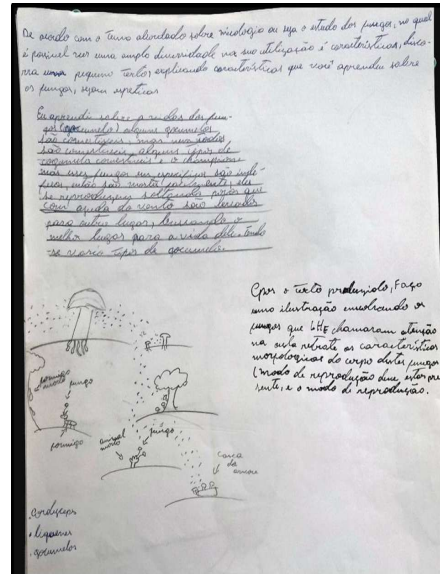 De acordo com o tema abordado sobre micologia ou seja o estudo dos fungos, no qual
é possível ver uma ampla diversidade na sua utilização e características, discorra
uma pequeno texto, explicando características que você aprendeu sobre
os fungos, sejam
Eu aprendi sobre a vida dos fungos
alguns
são comestíveis, mas nem todos
são comestíveis, alguns tipos de
comestíveis é o
mas uns fungos em específicos são
se reproduzem soltando
com ajuda do vento são levados
para outro lugar, buscando o
melhor lugar para a vida dele. Tendo
-se vários tipos de
Após o texto produzido, Faça
uma ilustração envolvendo os
fungos que LHE chamaram atenção
na aula retrate as características
morfológicas do corpo destes fungos
(modo de reprodução deve estar pre
sente, e o modo de reprodução.
formiga
morta
fungo
formiga
animal
morto
fungo
casca
da
árvore
. Cordyceps
. líquenes
. cogumelos